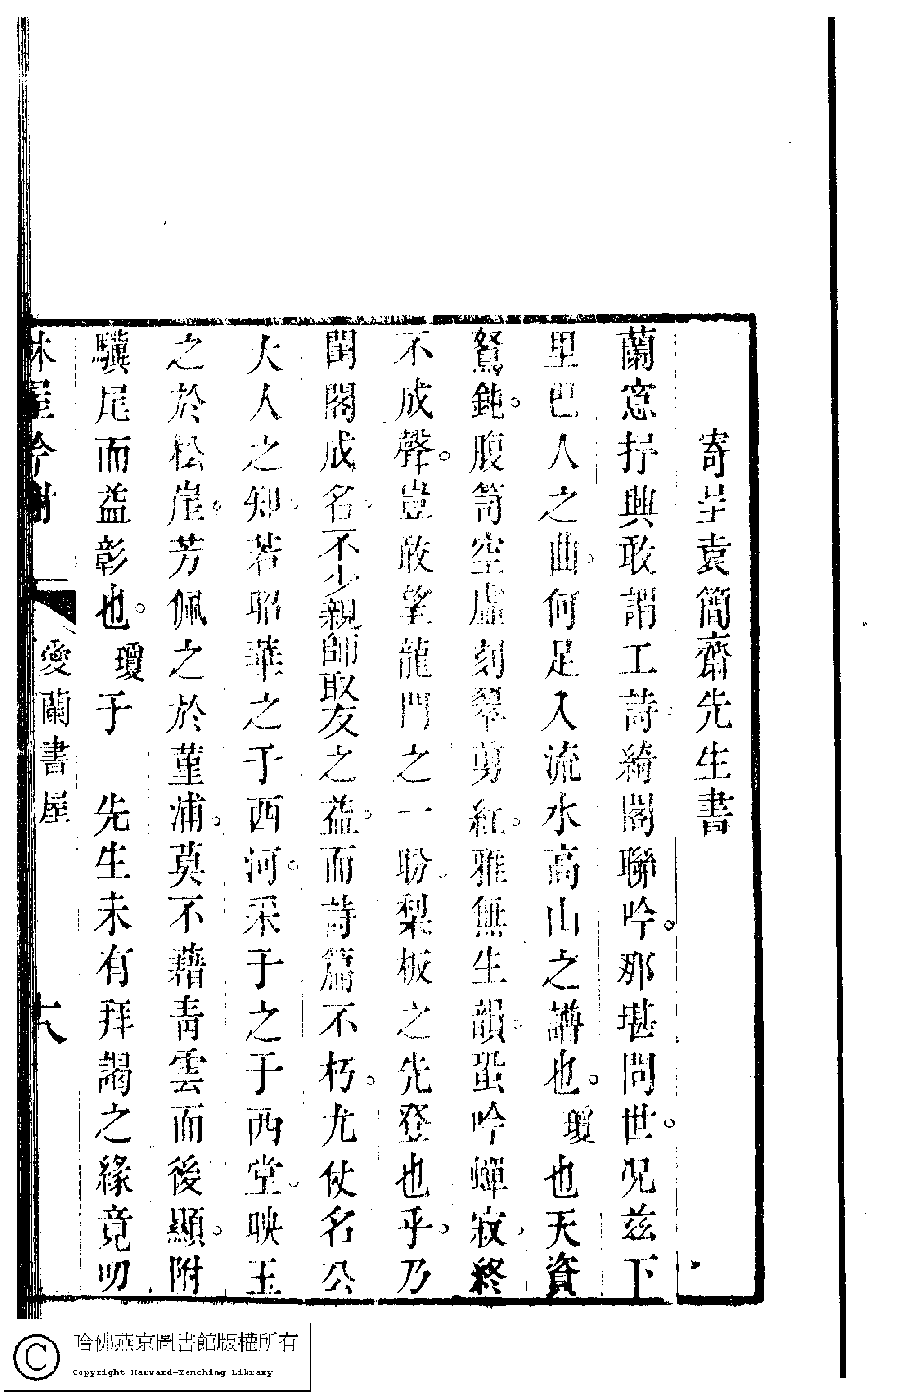 寄呈袁簡齋先生書
蘭窓抒興敢謂工詩綺閣聯吟。那堪問世。况茲下
里巴人之曲。何足入流水高山之譜也。瓊也天資
駑鈍。腹笥空虛刻翠剪紅。雅無生韻。蛩吟蟬寂。終
不成聲。豈敢望龍門之一盼。梨板之先登也乎。乃
閨閣成名。不少親師取友之益。而詩篇不朽。尤仗名公
大人之知。若昭華之于西河。采于之于西堂。映玉
之於松崖。芳佩之於菫浦。莫不藉青雲而後顯。附
驥尾而益彰也。瓊于　先生未有拜謁之緣竟叨
林屋吟榭
愛蘭書屋
六
哈佛燕京圖書館版權所有
Copyright Harvard-Yenching Library